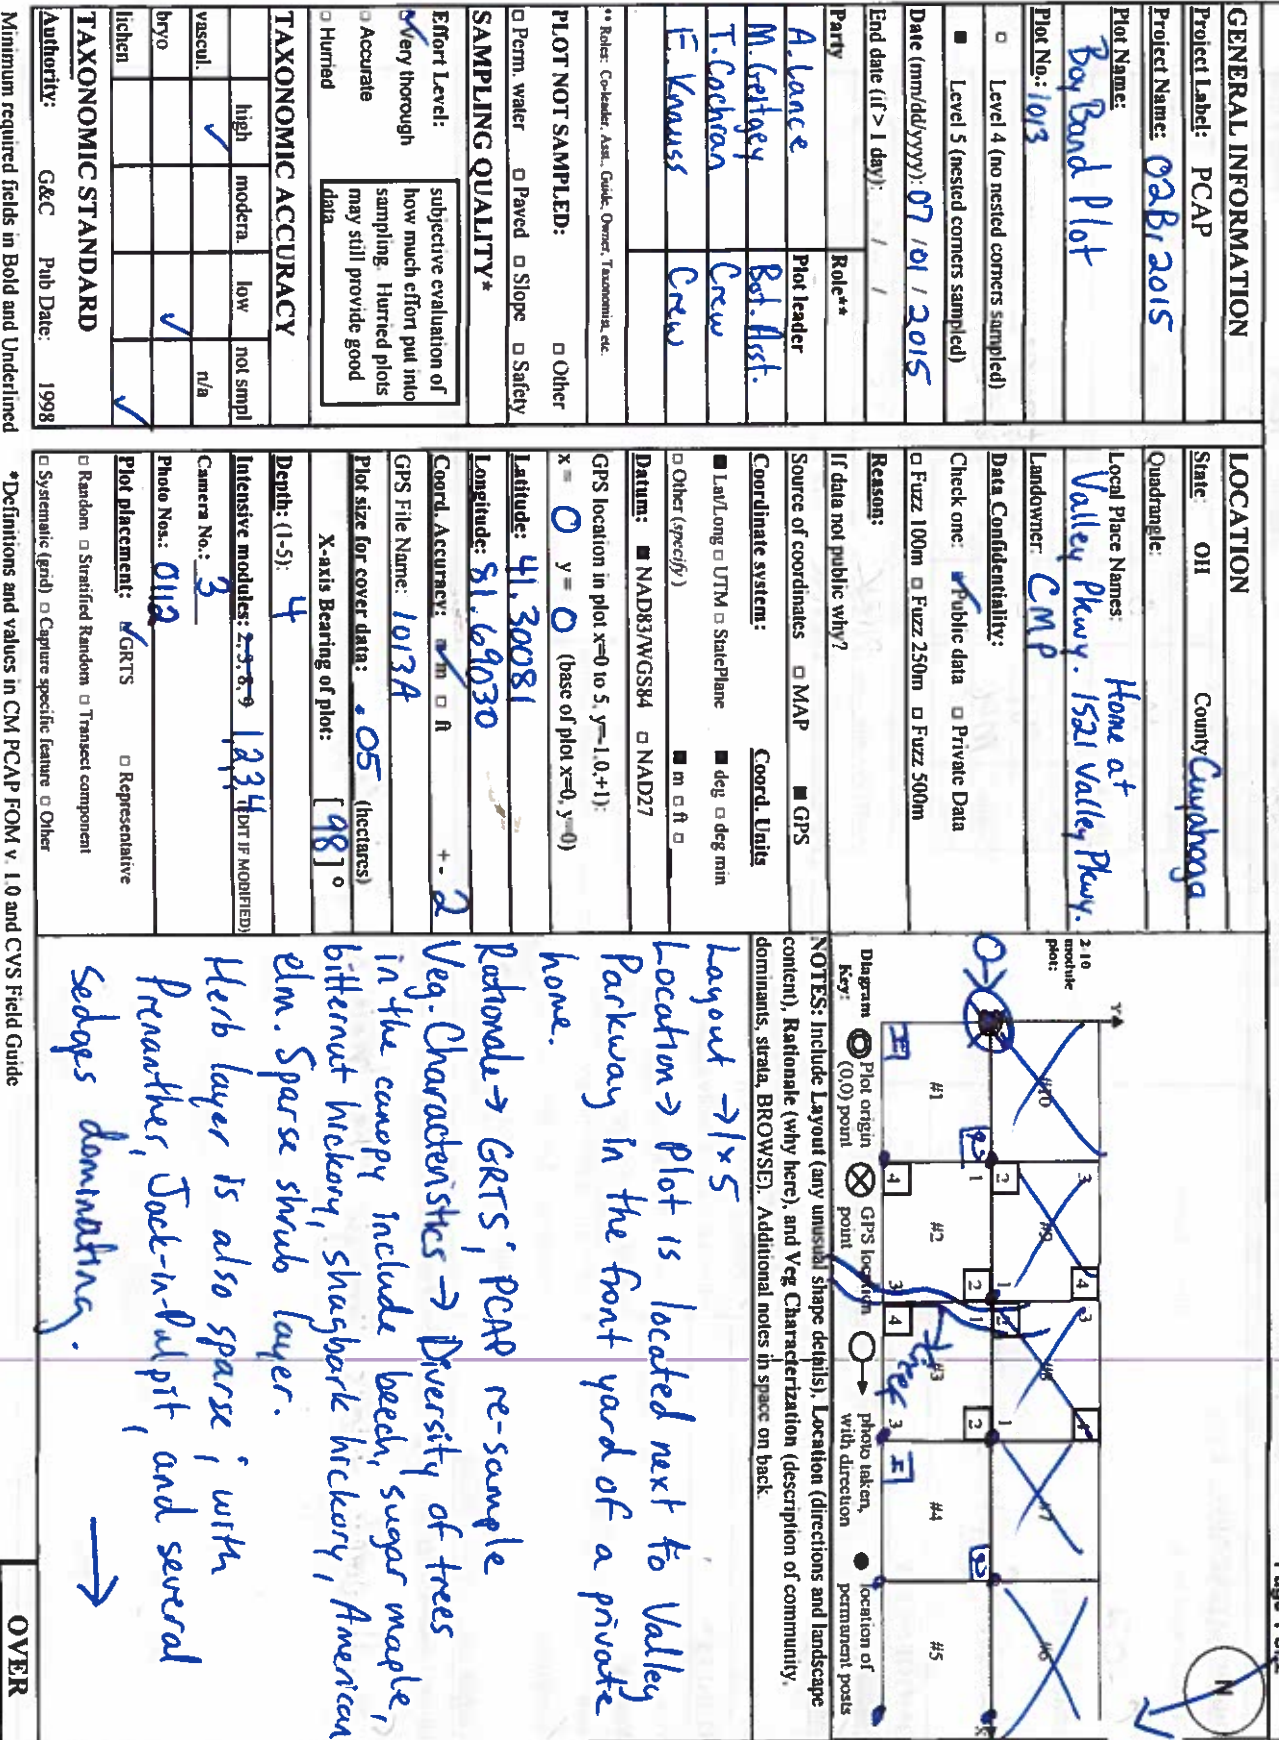 GENERAL INFORMATION
Project Label: PCAP
Project Name: 02Br 2015
Plot Name:
Boy Band Plot
Plot No.: 1013
□ Level 4 (no nested corners sampled)
■ Level 5 (nested corners sampled)
Date (mm/dd/yyyy): 07/01/2015
End date (if > 1 day): / /
Party Role**
A. Lance Plot leader
M. Greitgey Bot. Asst.
T. Cochran Crew
E. Knauss Crew
** Roles: Co-leader, Asst., Guide, Owner, Taxonomist, etc.
PLOT NOT SAMPLED: □ Other
□ Perm. water □ Paved □ Slope □ Safety
SAMPLING QUALITY*
Effort Level:
✓ Very thorough
□ Accurate
□ Hurried
subjective evaluation of
how much effort put into
sampling. Hurried plots
may still provide good
data
TAXONOMIC ACCURACY
high modera. low not smpl
vascul. ✓ n/a
bryo ✓
lichen ✓
TAXONOMIC STANDARD
Authority: G&C Pub Date: 1998
Minimum required fields in Bold and Underlined
LOCATION
State: OH County: Cuyahoga
Quadrangle:
Local Place Names: Home at
Valley Pkwy. 1521 Valley Pkwy.
Landowner: CMP
Data Confidentiality:
Check one: ✓ Public data □ Private Data
□ Fuzz 100m □ Fuzz 250m □ Fuzz 500m
Reason:
If data not public why?
Source of coordinates □ MAP ■ GPS
Coordinate system: Coord. Units
■ Lat/Long □ UTM □ StatePlane ■ deg □ deg min
□ Other (specify) ■ m □ ft □
Datum: ■ NAD83/WGS84 □ NAD27
GPS location in plot x=0 to 5, y=-1,0,+1):
x = 0 y = 0 (base of plot x=0, y=0)
Latitude: 41.30081
Longitude: 81.69030
Coord. Accuracy: ✓ m □ ft +- 2
GPS File Name: 1013A
Plot size for cover data: .05 (hectares)
X-axis Bearing of plot: [98]°
Depth: (1-5): 4
Intensive modules: 2,3,8,9 1,2,3,4 (EDIT IF MODIFIED)
Camera No.: 3
Photo Nos.: 0112
Plot placement: ✓ GRTS □ Representative
□ Random □ Stratified Random □ Transect component
□ Systematic (grid) □ Capture specific feature □ Other
*Definitions and values in CM PCAP FOM v. 1.0 and CVS Field Guide
N
2-10
module
plot:
Y
#10 #9 #8 #7 #6
#1 #2 #3 #4 #5
creek
Diagram Key: Plot origin (0,0) point GPS location point photo taken, with direction location of permanent posts
NOTES: Include Layout (any unusual shape details), Location (directions and landscape
content), Rationale (why here), and Veg Characterization (description of community,
dominants, strata, BROWSE). Additional notes in space on back.
Layout → 1x5
Location → Plot is located next to Valley
Parkway in the front yard of a private
home.
Rationale → GRTS; PCAP re-sample
Veg. Characteristics → Diversity of trees
in the canopy include beech, sugar maple,
bitternut hickory, shagbark hickory, American
elm. Sparse shrub layer.
Herb layer is also sparse; with
Prenanthes, Jack-in-Pulpit, and several
sedges dominating.
OVER